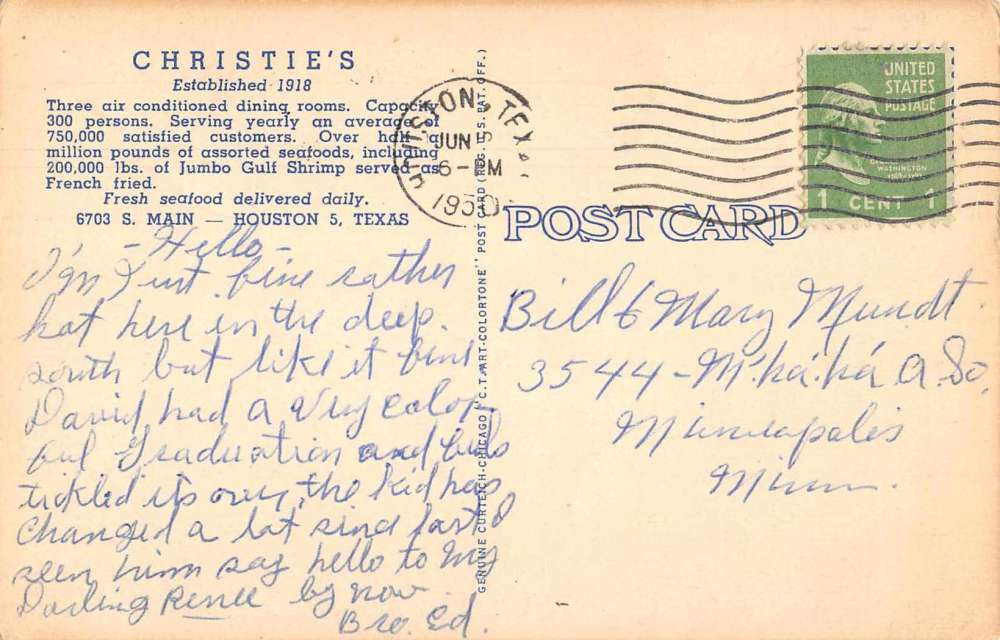 CHRISTIE'S
Established 1918
Three air conditioned dining rooms. Capacity
300 persons. Serving yearly an average of
750,000 satisfied customers. Over half a
million pounds of assorted seafoods, including
200,000 lbs. of Jumbo Gulf Shrimp served as
French fried.
Fresh seafood delivered daily.
6703 S. MAIN — HOUSTON 5, TEXAS
- Hello -
I'm Just fine rather
hot here in the deep.
south but like it fine
David had a very color
ful Graduation and feels
tickled its over, the kid has
changed a lot since last I
seen him say hello to my
Darling Renee by now
Bro. Ed.
GENUINE CURTEICH-CHICAGO "C.T. ART-COLORTONE" POST CARD (REG. U.S. PAT. OFF.)
HOUSTON, TEX
JUN
6 - PM
1950
UNITED
STATES
POSTAGE
WASHINGTON
1 CENT 1
POST CARD
Bill & Mary Mundt
3544 - M'ha'ha' A. So.
Minneapolis
Minn.